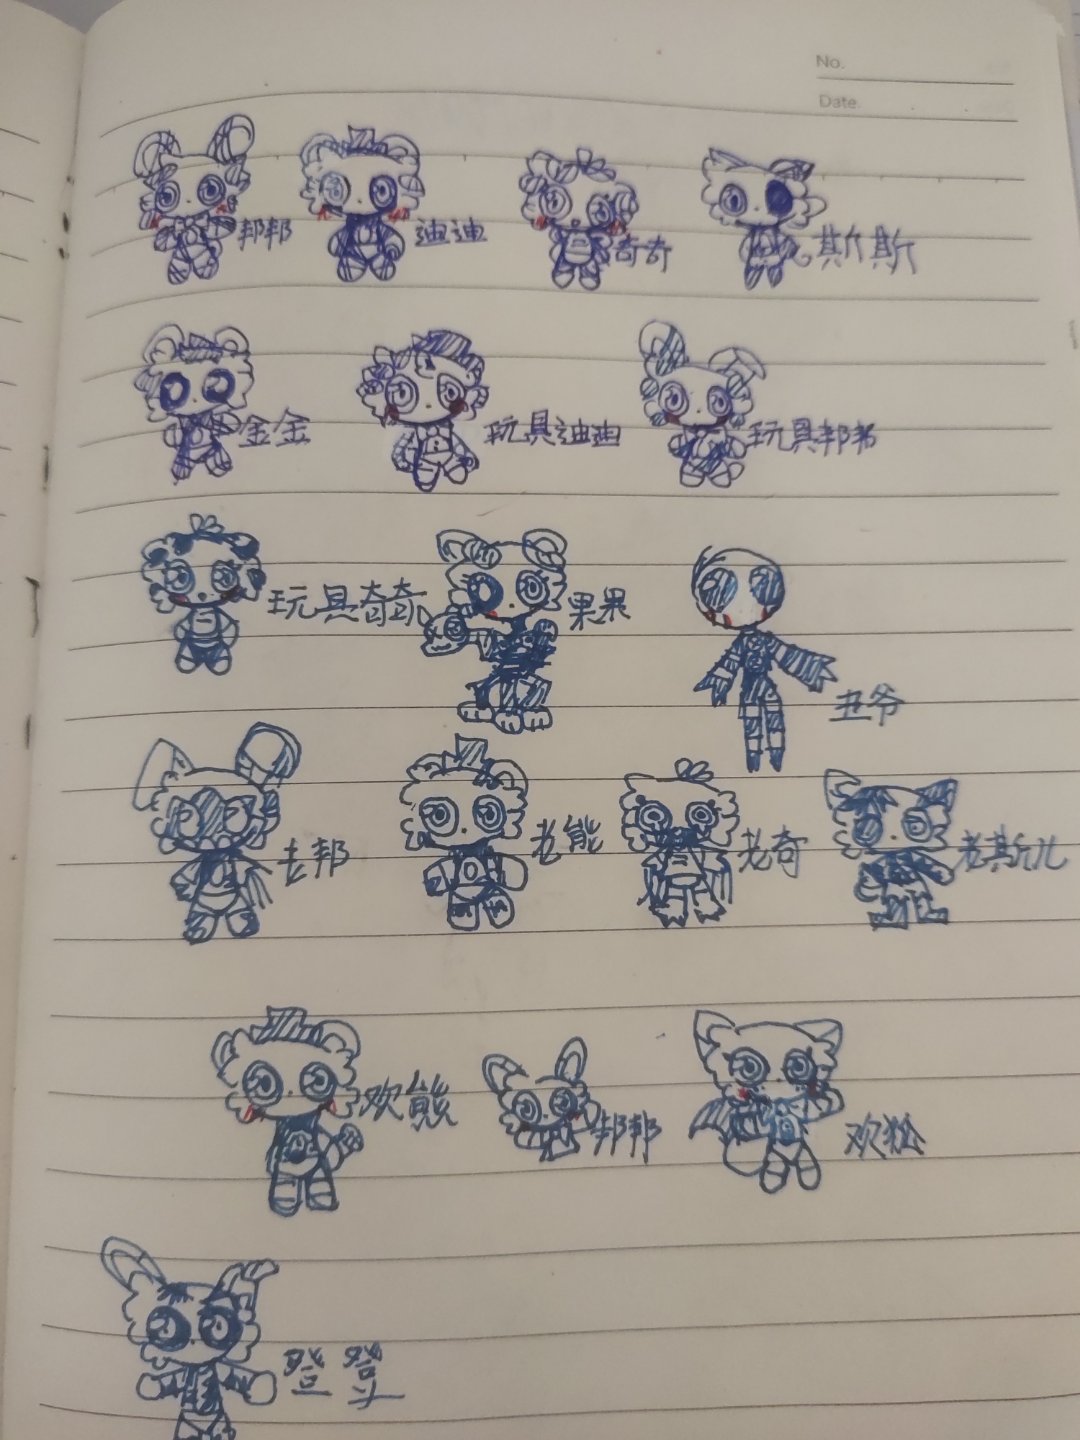 No.
Date.
邦邦 迪迪 奇奇 斯斯
金金 玩具迪迪 玩具邦邦
玩具奇奇 果果
丑爷
老邦 老熊 老奇 老斯儿
欢熊 邦邦 欢狐
登登